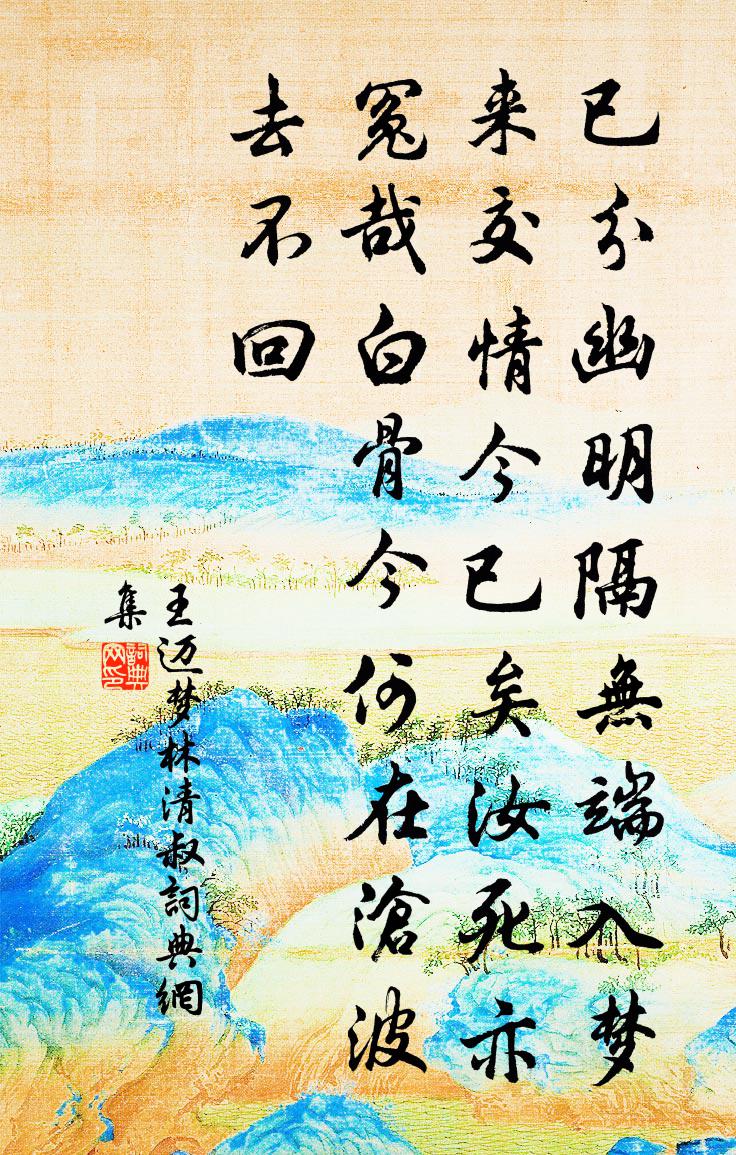 已分幽明隔無端入梦
来交情今已矣汝死亦
冤哉白骨今何在滄波
去不回
王迈梦林清叔詞典網
集
詞典
网印